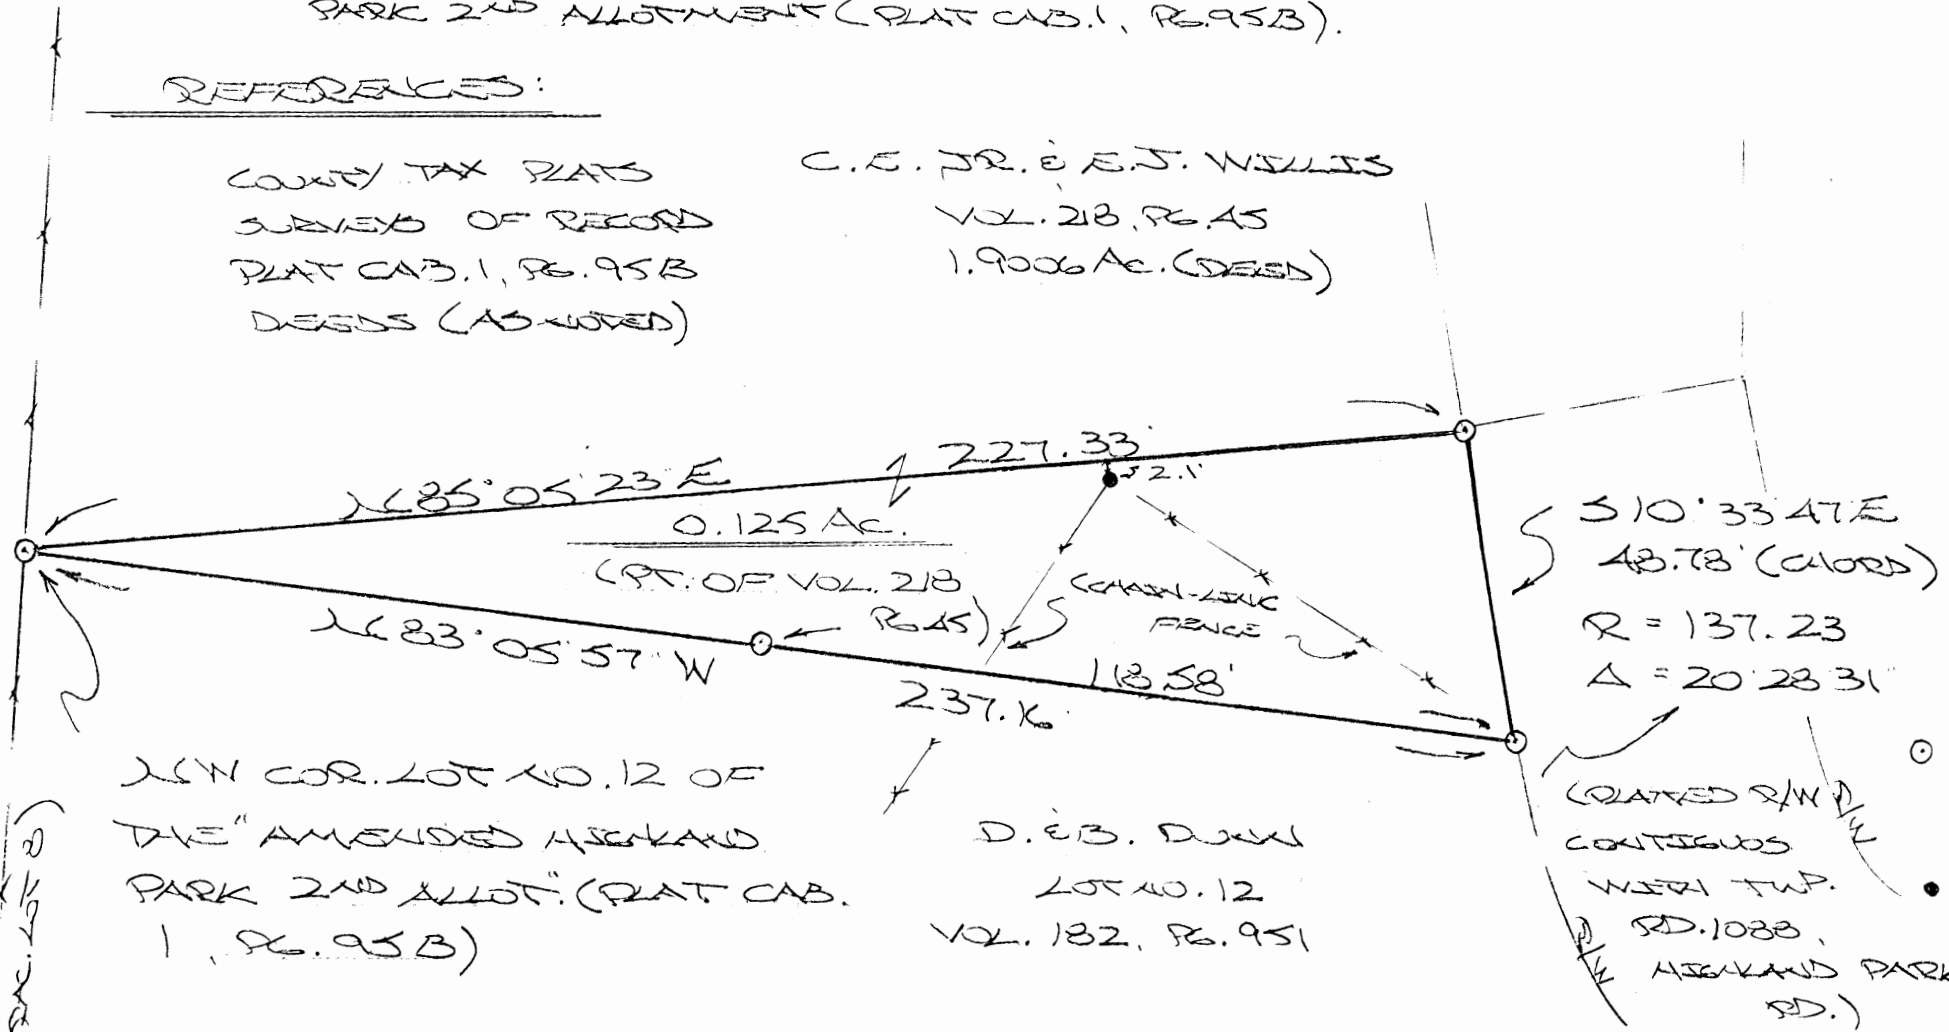 PARK 2ND ALLOTMENT (PLAT CAB.1, PG.95B).
REFERENCES:
COUNTY TAX PLATS
SURVEYS OF RECORD
PLAT CAB.1, PG.95B
DEEDS (AS NOTED)
C.E. JR. & E.J. WILLIS
VOL. 218, PG.45
1.9006 AC. (DEED)
N 85°05'23" E
227.33'
2.1'
0.125 AC.
(PT. OF VOL. 218
PG.45)
(CHAIN-LINK
FENCE
N 83°05'57" W
118.58'
237.16'
S 10°33'47" E
48.78' (CHORD)
R = 137.23
Δ = 20°28'31"
NW COR. LOT NO. 12 OF
THE "AMENDED HIGHLAND
PARK 2ND ALLOT." (PLAT CAB.
1, PG. 95B)
D. & B. DUNN
LOT NO. 12
VOL. 182, PG. 951
(PLATTED R/W
CONTIGUOS
WITH TWP.
RD. 1088,
HIGHLAND PARK
RD.)
R/W
R/W